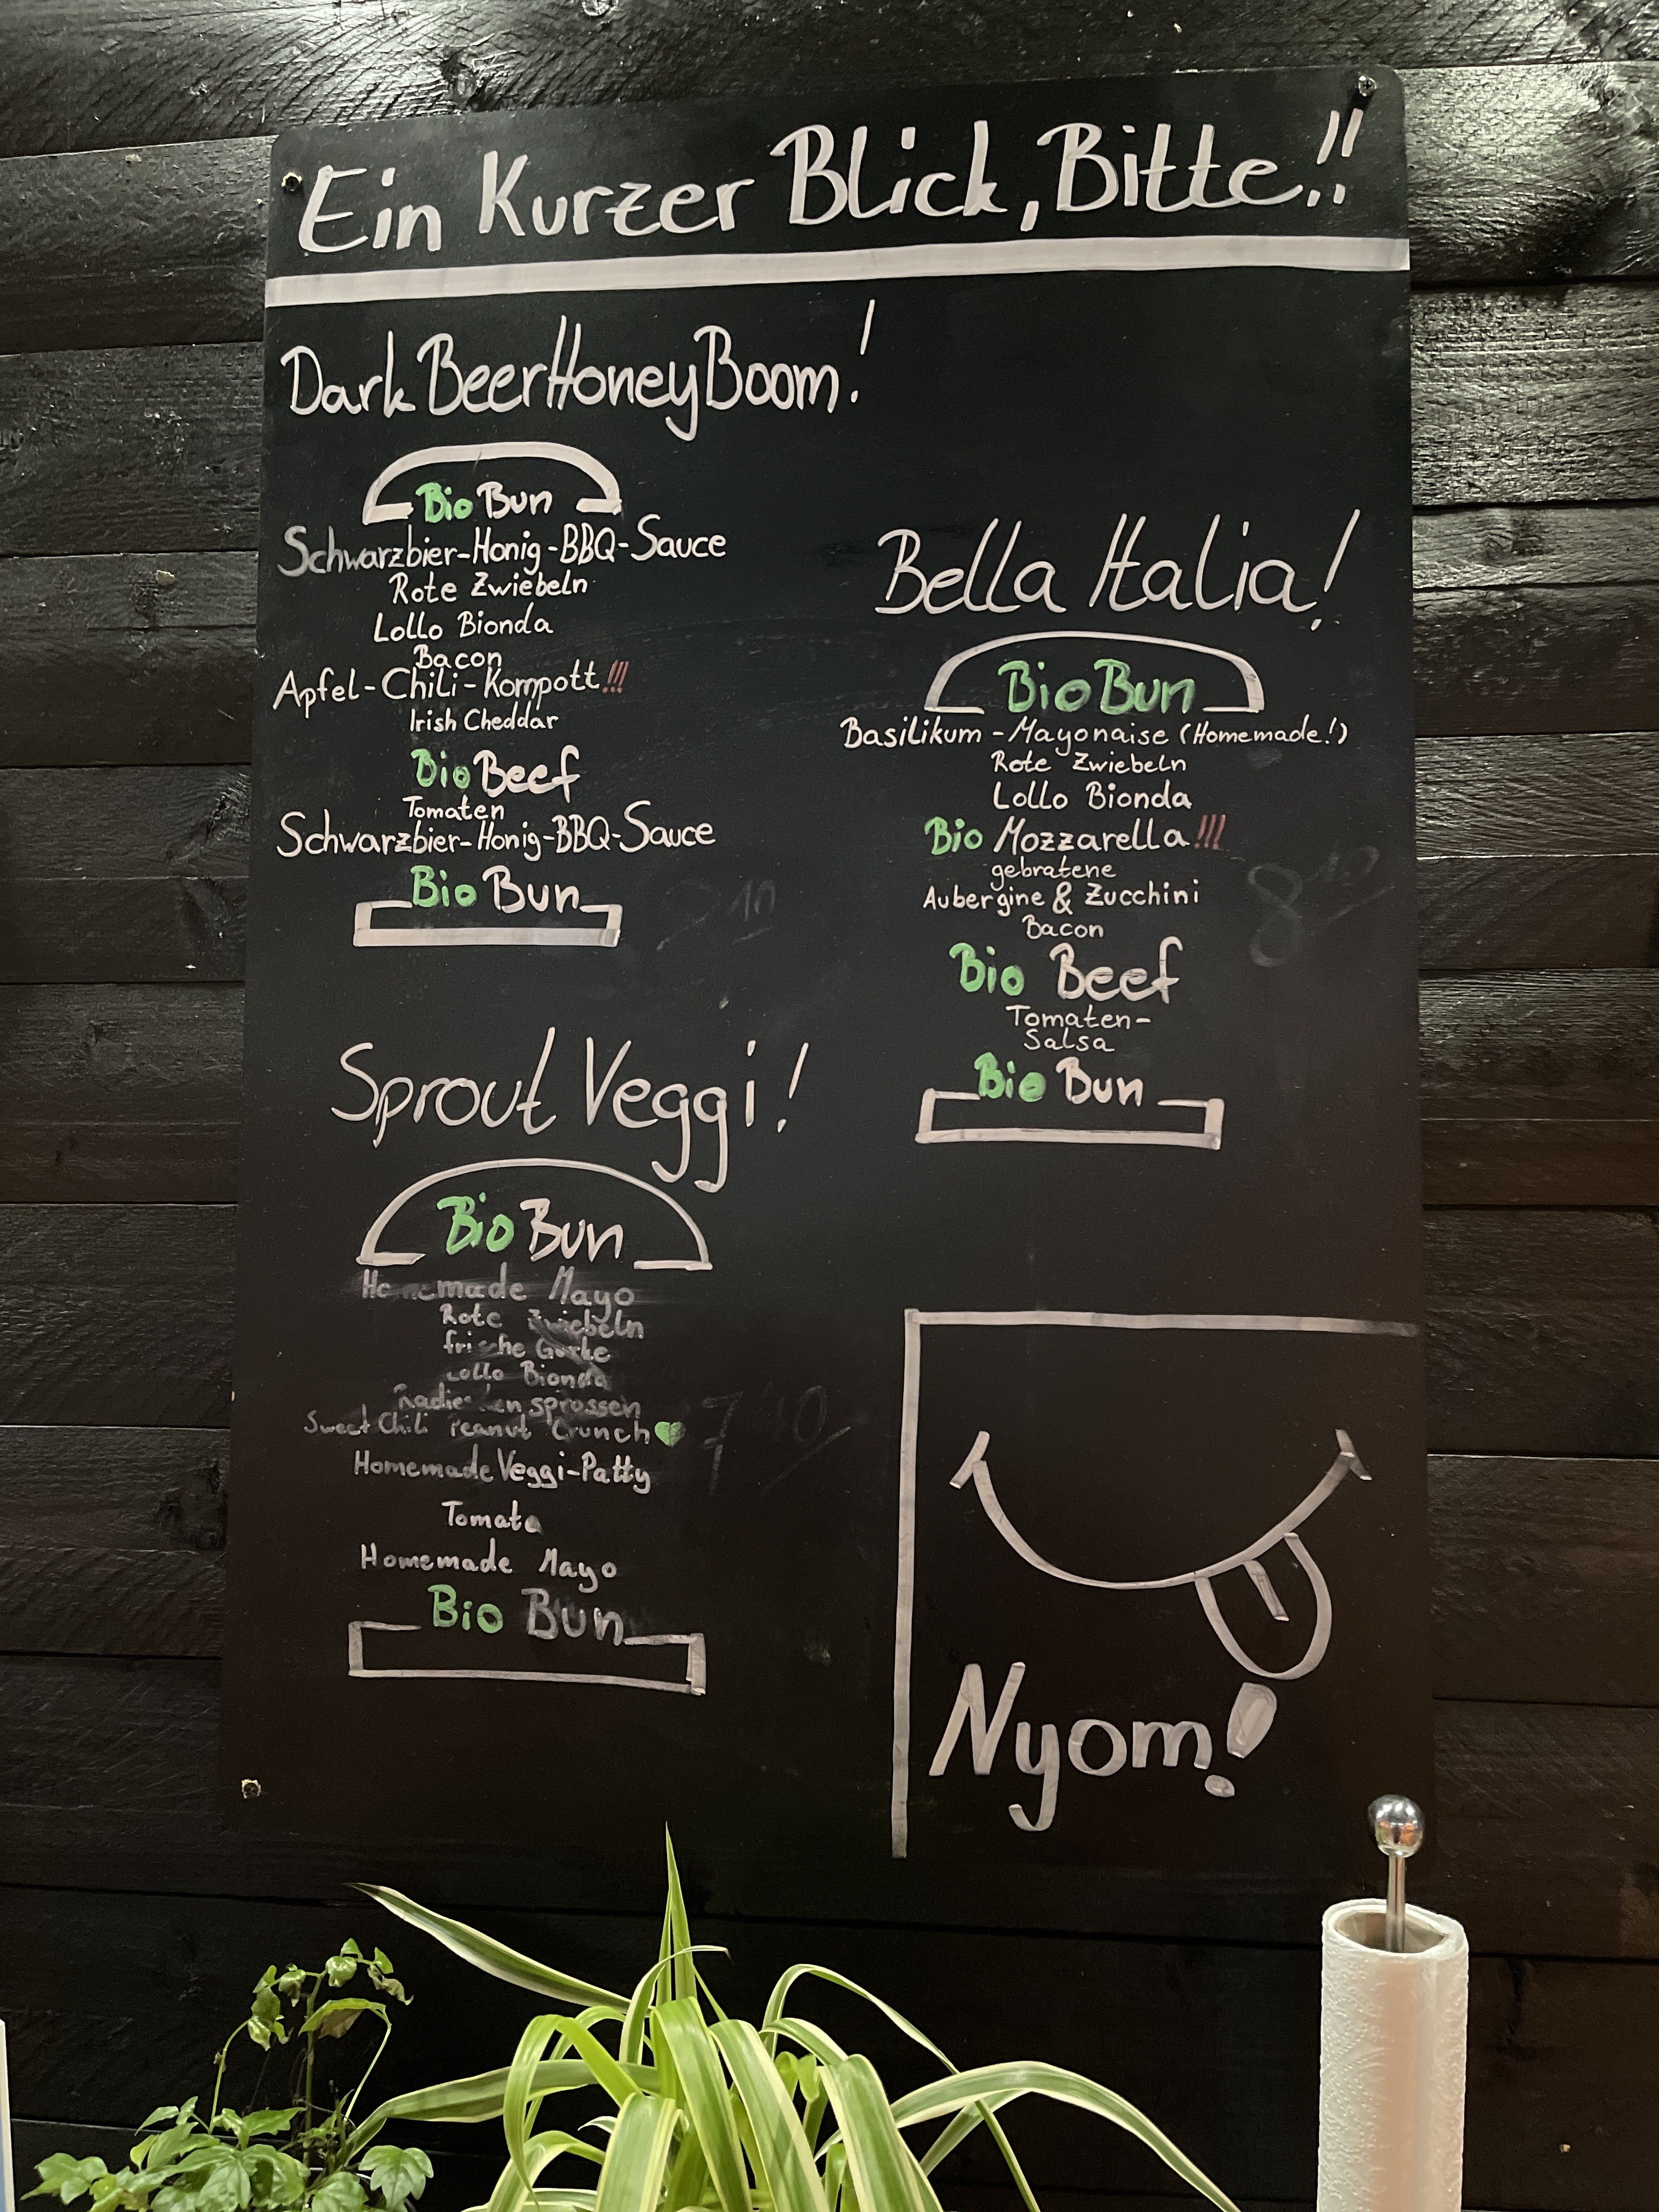 Ein Kurzer Blick, Bitte!!
DarkBeerHoneyBoom!
Bio Bun
Schwarzbier-Honig-BBQ-Sauce
Rote Zwiebeln
Lollo Bionda
Bacon
Apfel-Chili-Kompott!!!
Irish Cheddar
Bio Beef
Tomaten
Schwarzbier-Honig-BBQ-Sauce
Bio Bun
Bella Italia!
Bio Bun
Basilikum-Mayonaise (Homemade!)
Rote Zwiebeln
Lollo Bionda
Bio Mozzarella!!!
gebratene
Aubergine & Zucchini
Bacon
Bio Beef
Tomaten-
Salsa
Bio Bun
8¹⁰
Sprout Veggi!
Bio Bun
Homemade Mayo
Rote Zwiebeln
frische Gurke
Lollo Bionda
Radieschensprossen
Sweet Chili Peanut Crunch
Homemade Veggi-Patty
Tomate
Homemade Mayo
Bio Bun
Nyom!